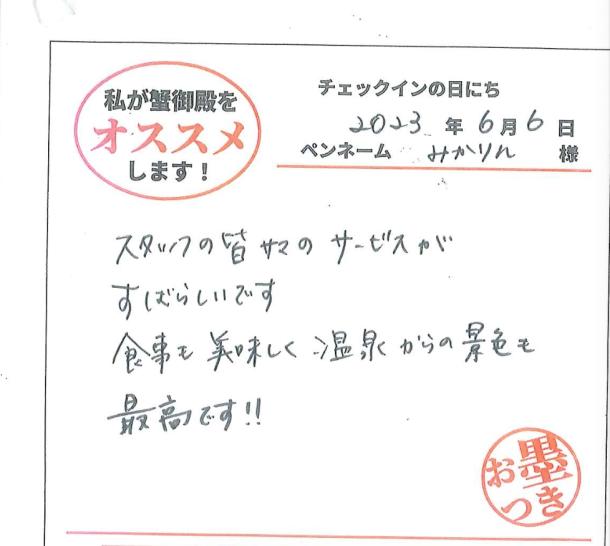 私が蟹御殿を
オススメ
します！
チェックインの日にち
2023年6月6日
ペンネーム みかりん 様
スタッフの皆サマのサービスが
すばらしいです
食事も美味しく温泉からの景色も
最高です!!
お墨
つき